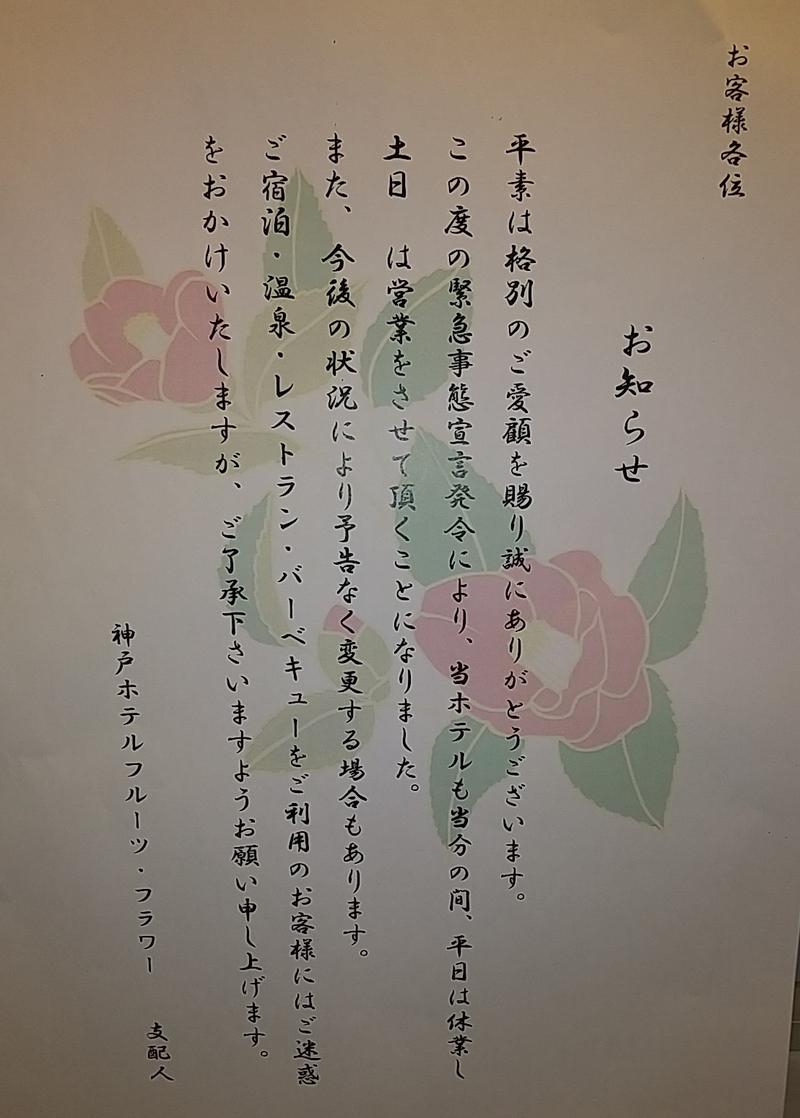 お客様各位
お知らせ
平素は格別のご愛顧を賜り誠にありがとうございます。
この度の緊急事態宣言発令により、当ホテルも当分の間、平日は休業し
土日　は営業をさせて頂くことになりました。
また、今後の状況により予告なく変更する場合もあります。
ご宿泊・温泉・レストラン・バーベキューをご利用のお客様にはご迷惑
をおかけいたしますが、ご了承下さいますようお願い申し上げます。
神戸ホテルフルーツ・フラワー　支配人